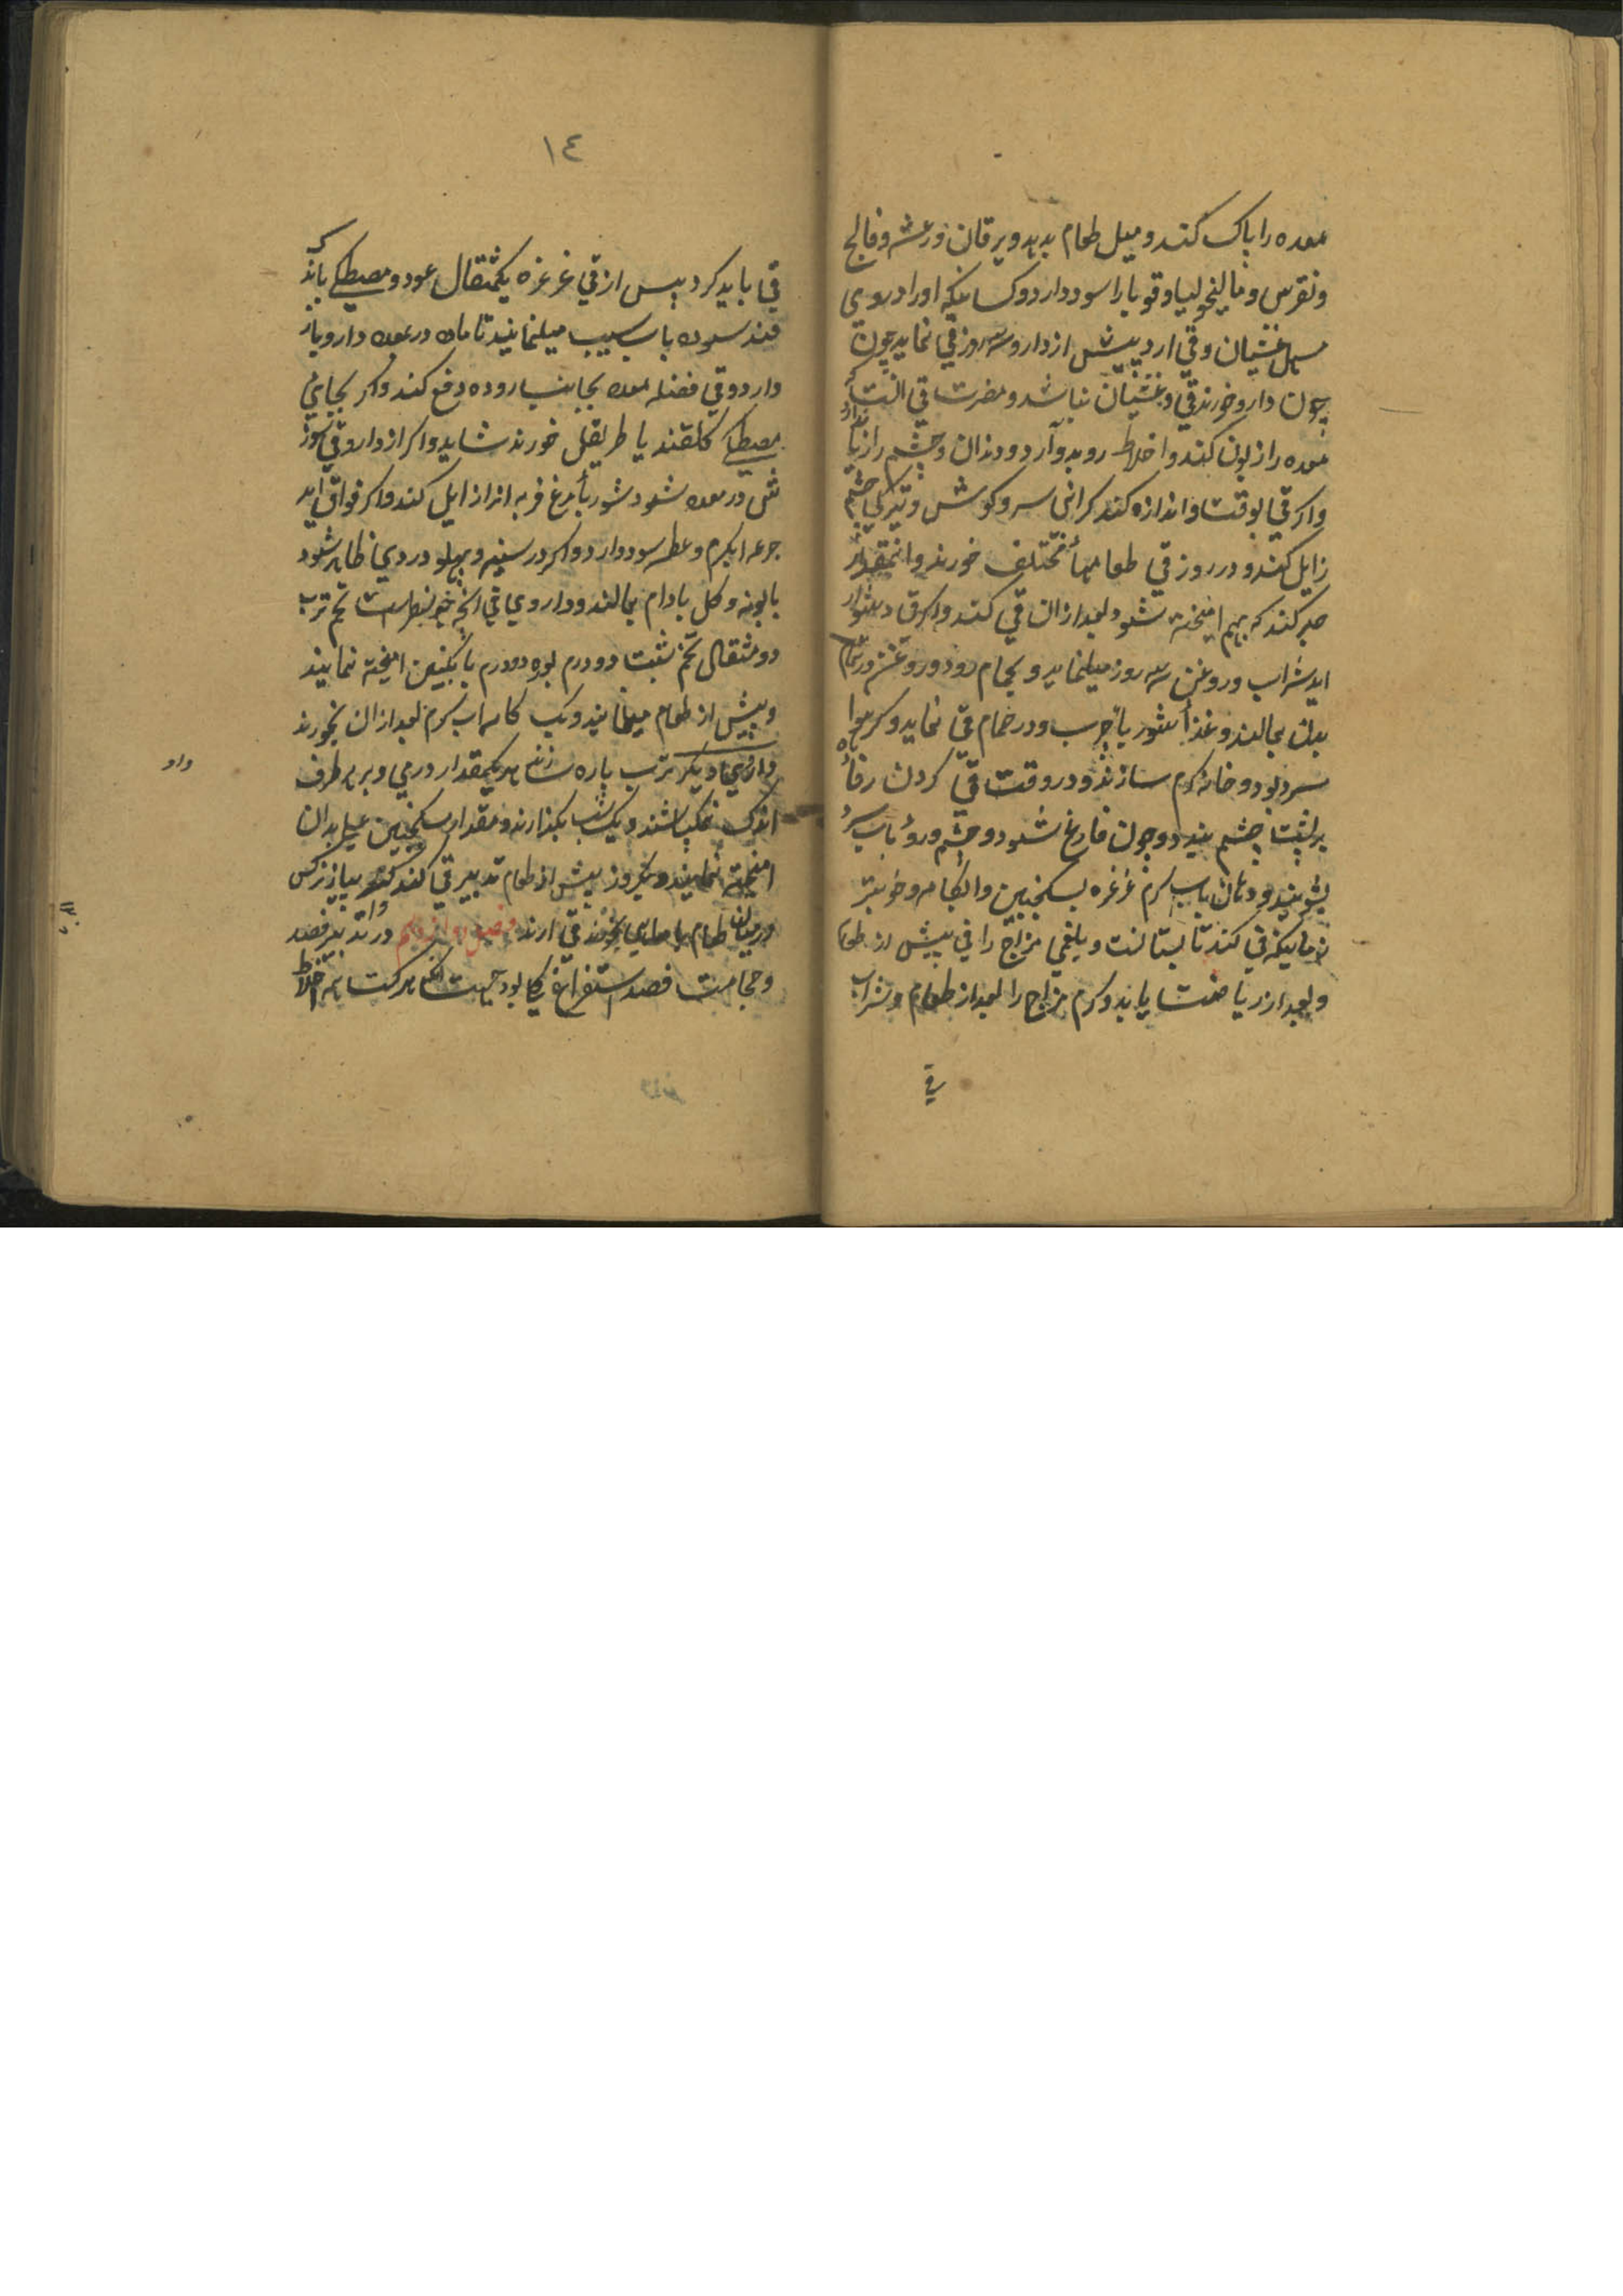 معده را پاک کند و میل طعام بدهد و یرقان و رعشه و فالج
و نقرس و مالیخولیا و قوبا را سود دارد و کسانیکه او را داروی
مسهل غثیان و قی ارد پیش از دارو سه روز قی نماید چون
چون دارو خورند قی و غثیان نباشد و مضرت قی انست که
معده را زبون کند و اخلاط روبدو آرد و دندان و چشم را زیان دارد
و اکر قی بوقت و اندازه کند کرانی سر و کوش و تیرکی چشم
زایل کند و در روز قی طعامهأ مختلف خورند و انمقدار
صبر کنند که بهم امیخته شود بعد ازان قی کنند و اکر قی دشوار
اید شراب و روغن سه روز میلنماید و بحمام رود و روغن در تمام
بدن بمالند و غذأ شوربا چرب و در حمام قی نماید و کر هوا
سرد بود و خانه کرم سازند و در وقت قی کردن رفاده
بر پشت چشم بندد و چون فارغ شود و چشم و رؤ باب سرد
بشویند و دهان باب کرم غرغره بسکنجبین و ابکامه و خوبتر
زمانیکه قی کند تابستانست و بلغمی مزاج را قی پیش از طعام
و بعد از ریاضت باید و کرم مزاج را بعد از طعام و شراب
قی
١٤
قی باید کرد پس از قی غرغره یکمثقال عود و مصطکی باند که
قند سوده باب سیب میلنمایند تا ماده در معده دارو باز
دارد و قی فضله معده بجانب روده دفع کند و اکر بجای
مصطکی کلقند یا طریفل خورند شاید و اکر از دارو قی سوز
ش در معده شود شوربأ مرغ فربه انرا زایل کند و اکر فواق اید
جرعه ابکرم و عطسه سود دارد و اکر در سینه و پهلو دردی ظاهر شود
بابونه و کل بادام بمالند و داروی قی انچه خوبتر است تخم ترب
دو مثقال تخم شبت دو درم بوره دو درم بانکبین امیخته نمایند
و پیش از طعام میلنمایند و یک کاسه اب کرم بعد ازان بخورند
داروی دیکر ترب پاره سازند هر یکمقدار درمی و بر هر طرف
اندک نمک پاشند و یک شب بکذارند و مقدار سکنجبین عسل بدان
امیخته نمایند و یکروز پیش از طعام تدبیر قی کند پیاز نرکس
درمیان طعام بخورند قی ارند فصل دوازدهم در تدبیر فصد
و حجامت فصد استفراغی بود جهت انکه مرکبت بهمه اخلاط
داد